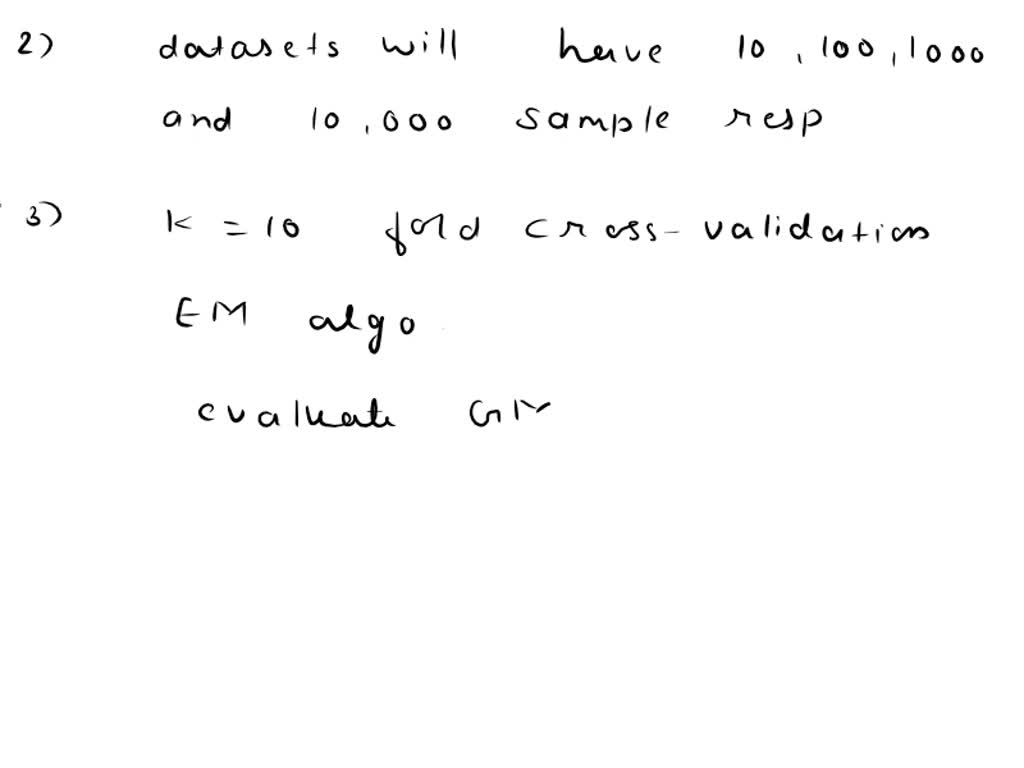 2) datasets will have 10, 100, 1000
and 10,000 sample resp
3) K = 10 fold cross-validation
EM algo
evaluate